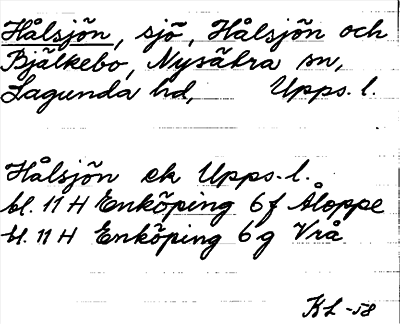 Hålsjön, sjö, Hålsjön och
Bjälkebo, Nysätra sn,
Lagunda hd, Upps. l.
Hålsjön ek Upps. l.
bl. 11 H Enköping 6 f Åloppe
bl. 11 H Enköping 6 g Vrå
KL -58